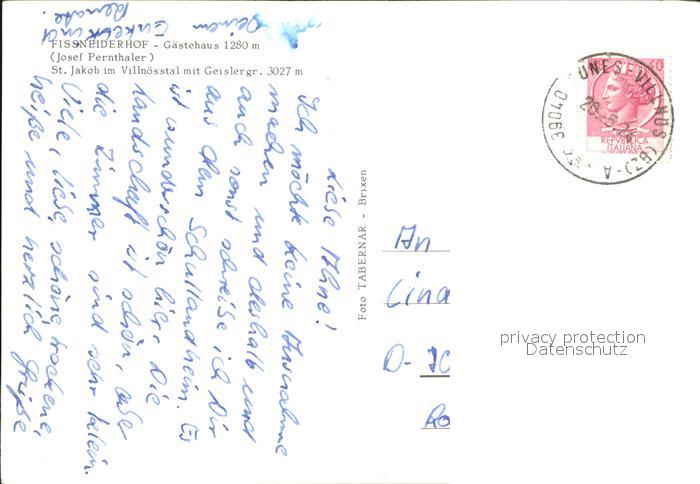 FISSNEIDERHOF - Gästehaus 1280 m
(Josef Pernthaler)
St. Jakob im Villnösstal mit Geislergr. 3027 m
Liebe Ahne!
Ich möchte keine Ausnahme
machen und deshalb und
auch sonst schreibe ich Dir
aus dem Schullandheim. Es
ist wunderschön hier. Die
Landschaft ist schön, aber
die Zimmer sind sehr klein.
Viele, liebe, schöne, trockene,
heiße und herzlich Grüße
Deinem Enkelkind
Renate.
Foto TABERNAR - Brixen
An
Lina
D-
39040 FUNES-VILLNÖS (BZ)-A
POSTE
REPVBBLICA
ITALIANA
privacy protection
Datenschutz